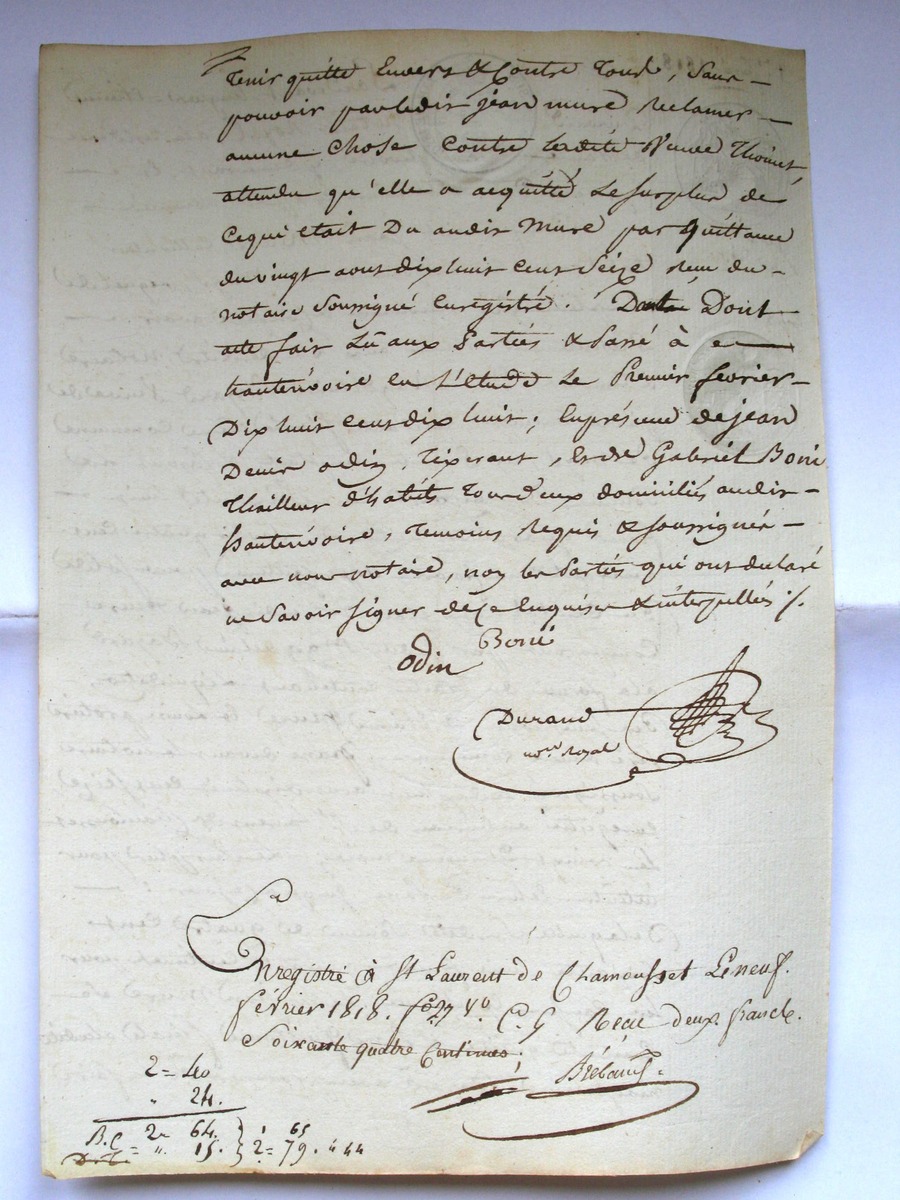 Tenir quitte Envers & Contre Tous, Sans
pouvoir par ledit jean mure Reclamer
aucune Chose Contre ladite Veuve Thoinet,
attendu qu'elle a acquitté Le Surplus de
Cequi etait Du audit Mure par Quittance
du vingt aout dix huit cent Seize Reçu du
notaire Soussigné Enregistré. Dont
acte fait Lû aux Parties & Passé à
hauterivoire en L'Etude Le Premier fevrier
Dix huit cent dix huit; En présence de jean
Denis odin, Tixerant, Et de Gabriel Boni
Thailleur d'habits Tous deux domiciliés audit
hauterivoire, Temoins Requis & Soussignés
avec nous notaire, non les Parties qui ont declaré
ne Savoir Signer de Ce Enquises & interpellés ./.
Boni
odin
Durand
no.re Royal
Enregistré à St Laurent de Chamousset Le neuf.
février 1818. fo 27 Vo. C. 9 Recu deux francs.
Soixante quatre Centimes;
Brebant
2 = 40
" 24.
B.C 2 = 64. } 1 65
= " 15. } 2 = 79. " 44